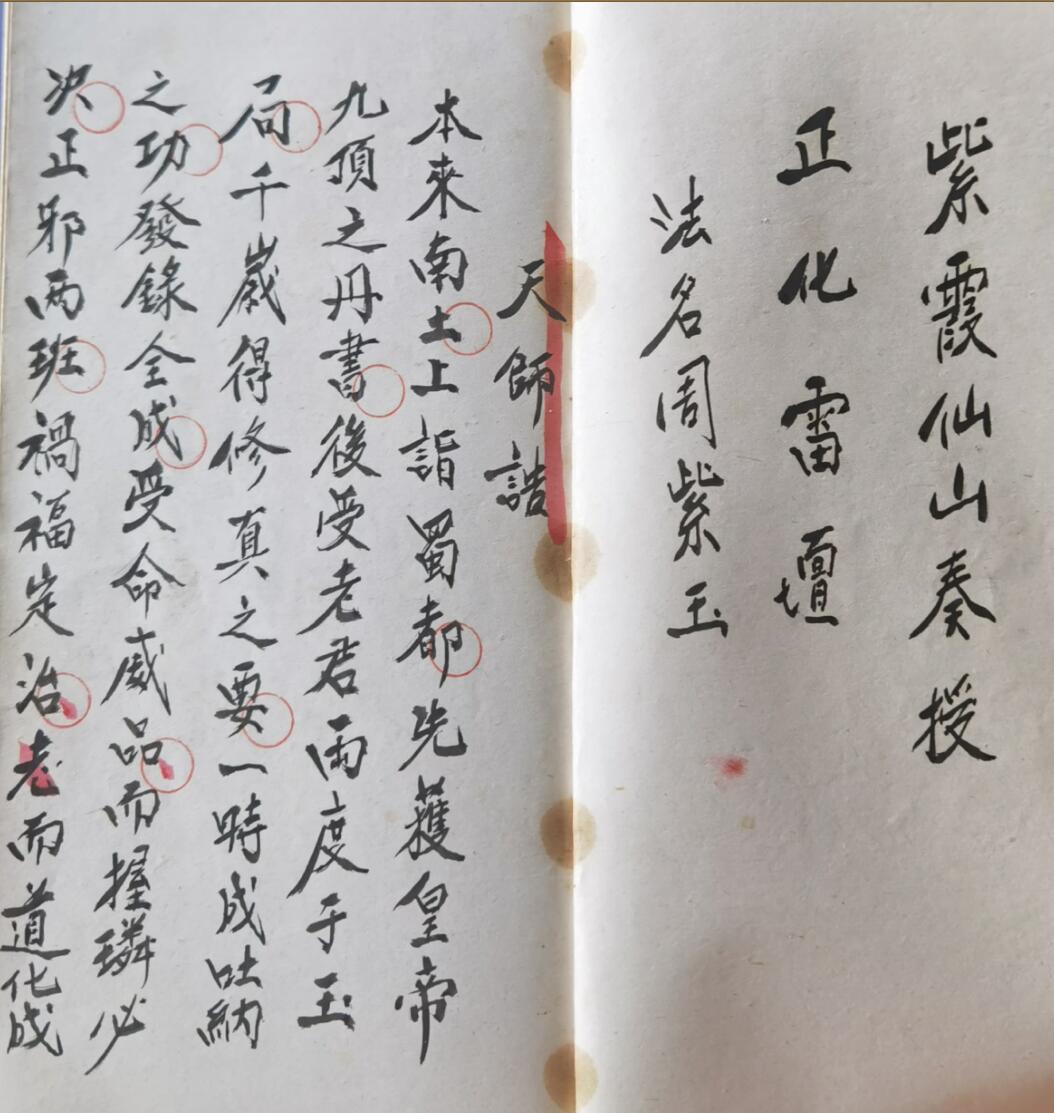 紫霞仙山奏授
正化雷壇
法名周紫玉
天師誥
本來南土上詣蜀都先獲皇帝
九頂之丹書後受老君兩度于玉
局千歲得修真之要一時成吐納
之功發錄全成受命威品而握璘必
决正邪两班禍福定治老而道化成